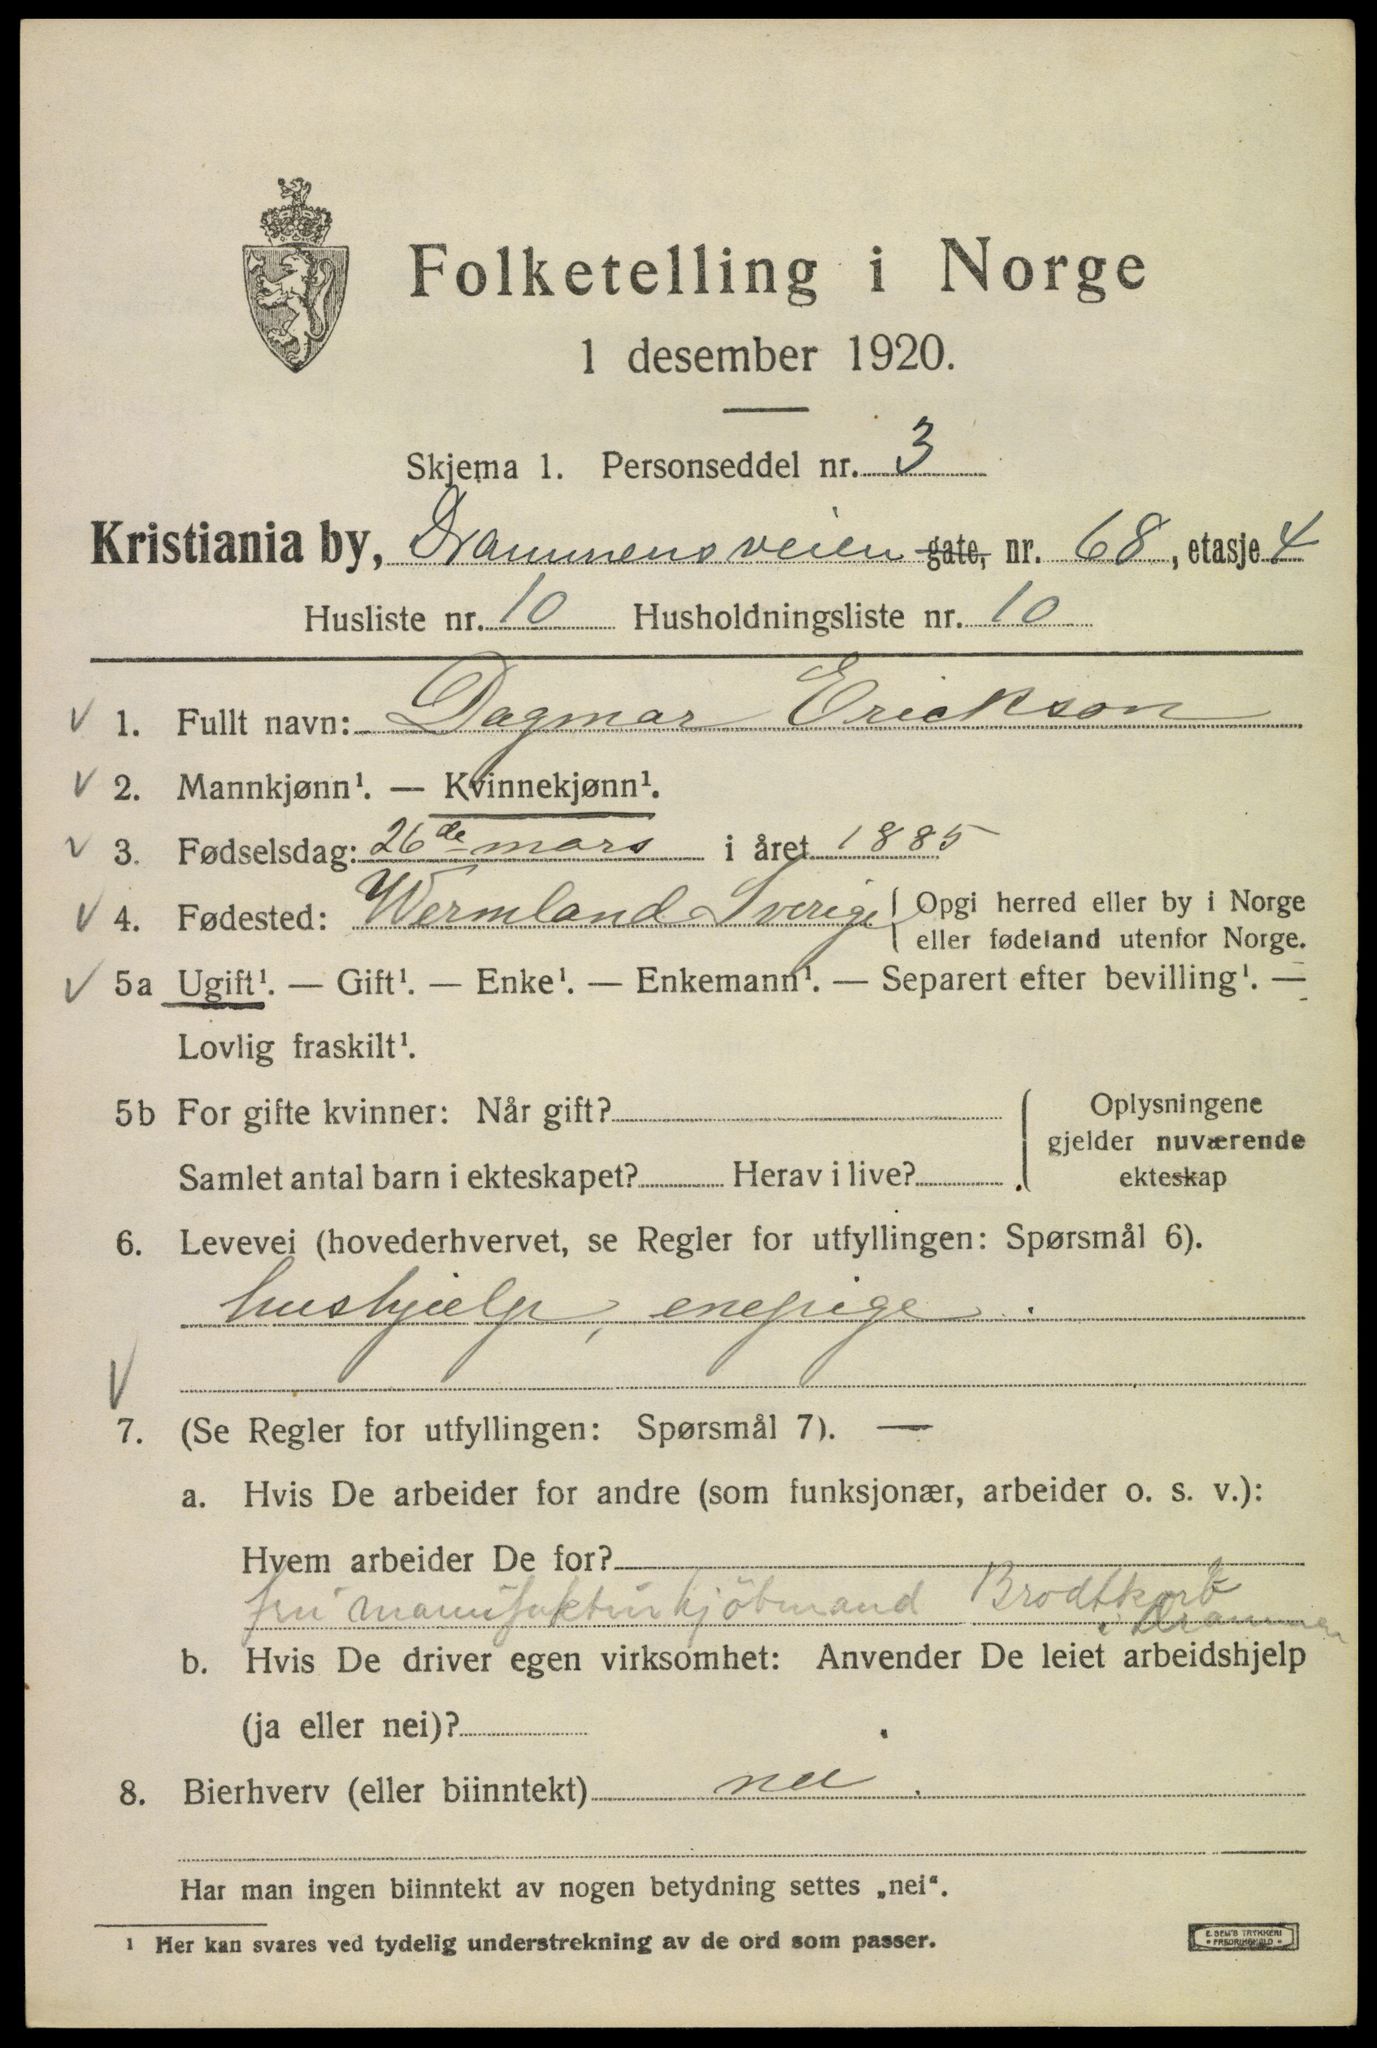 Folketelling i Norge
1 desember 1920.
Skjema 1. Personseddel nr. 3
Kristiania by, Drammensveien gate, nr. 68, etasje 4
Husliste nr. 10 Husholdningsliste nr. 10
1. Fullt navn: Dagmar Erickson
2. Mannkjønn¹. — Kvinnekjønn¹.
3. Fødselsdag: 26de mars i året 1885
4. Fødested: Wermland Sverige { Opgi herred eller by i Norge
eller fødeland utenfor Norge.
5a Ugift¹. — Gift¹. — Enke¹. — Enkemann¹. — Separert efter bevilling¹. —
Lovlig fraskilt¹.
5b For gifte kvinner: Når gift?
Samlet antal barn i ekteskapet? Herav i live?.
Oplysningene
gjelder nuværende
ekteskap
6. Levevei (hovederhvervet, se Regler for utfyllingen: Spørsmål 6).
hushjelp, enepige.
7. (Se Regler for utfyllingen: Spørsmål 7). —
a. Hvis De arbeider for andre (som funksjonær, arbeider o. s. v.):
Hvem arbeider De for?
fru manufakturkjöbmand Brodtkorb
i Drammen
b. Hvis De driver egen virksomhet: Anvender De leiet arbeidshjelp
(ja eller nei)?
8. Bierhverv (eller biinntekt) nei.
Har man ingen biinntekt av nogen betydning settes „nei“.
¹ Her kan svares ved tydelig understrekning av de ord som passer.
E. SEM'S TRYKKERI
* FREDRIKSHALD *